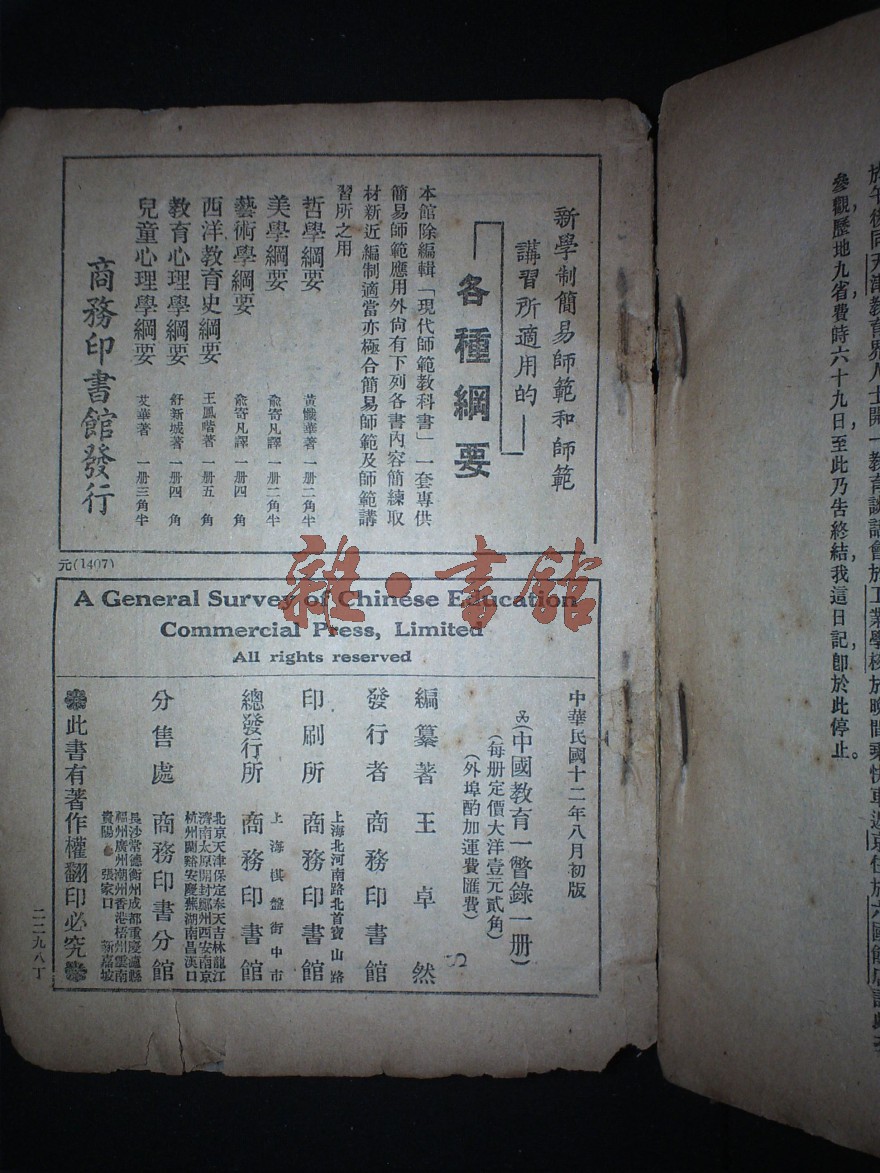 參觀歷地九省費時六十九日至此乃告終結我這日記卽於此停止。
新學制簡易師範和師範
講習所適用的
各種綱要
本館除編輯「現代師範教科書」一套專供
簡易師範應用外尙有下列各書內容簡練取
材新近編制適當亦極合簡易師範及師範講
習所之用
哲學綱要 黃懺華著 一册二角半
美學綱要 俞寄凡譯 一册二角半
藝術學綱要 俞寄凡譯 一册四角
西洋教育史綱要 王鳳喈著 一册五角
教育心理學綱要 舒新城著 一册四角
兒童心理學綱要 艾華著 一册三角半
商務印書館發行
元(1407)
雜·書館
A General Survey of Chinese Education
Commercial Press, Limited
All rights reserved
中華民國十二年八月初版
(中國教育一瞥錄一册)
(每册定價大洋壹元貳角)
(外埠酌加運費匯費)
編纂著 王卓然
發行者 商務印書館
印刷所 上海北河南路北首寶山路 商務印書館
總發行所 上海棋盤街中市 商務印書館
分售處 商務印書分館
北京天津保定奉天吉林龍江
濟南太原開封鄭州西安南京
杭州蘭谿安慶蕪湖南昌漢口
長沙常德衡州成都重慶瀘縣
福州廣州潮州香港梧州雲南
貴陽 張家口 新嘉坡
此書有著作權翻印必究
二二九八丁